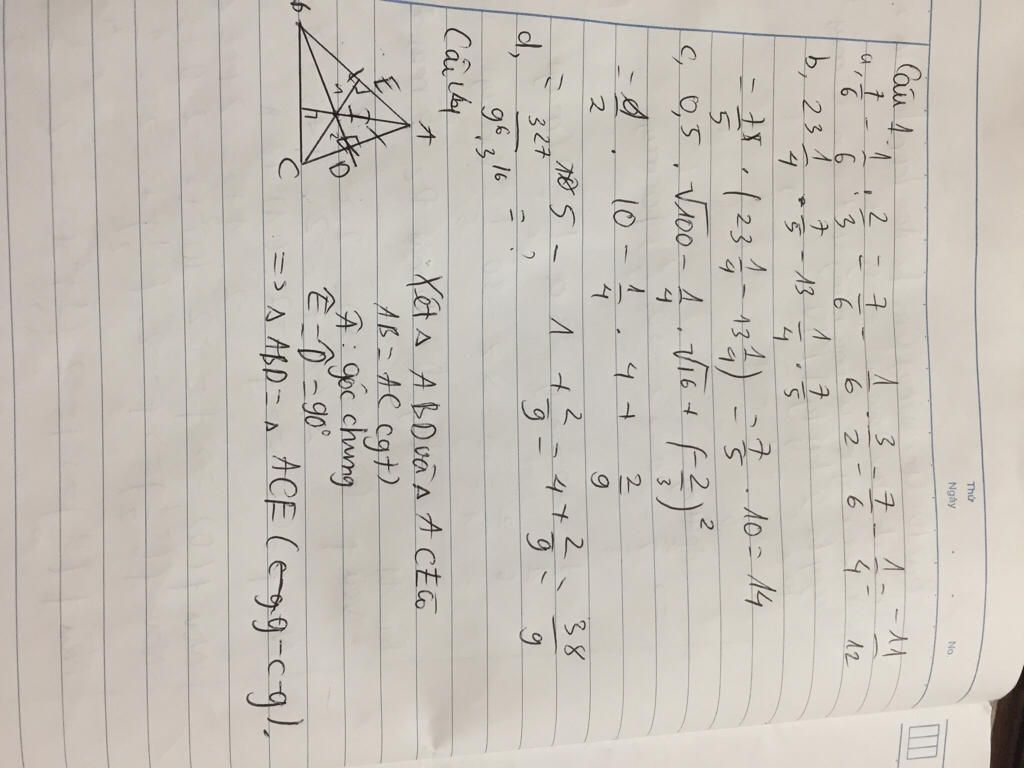 Thứ
Ngày . . No.
Câu 1.
a, 7/6 - 1/6 : 2/3 = 7/6 - 1/6 . 3/2 = 7/6 - 1/4 = -11/12
b, 23 1/4 . 7/5 - 13 1/4 . 7/5
= 7/5 . (23 1/4 - 13 1/4) = 7/5 . 10 = 14
c, 0,5 . √100 - 1/4 . √16 + (-2/3)²
= 1/2 . 10 - 1/4 . 4 + 2/9
= 5 - 1 + 2/9 = 4 + 2/9 = 38/9
d, 3²⁷/9⁶ . 3¹⁶ =
Câu 4
A
E
D
B
C
Xét Δ ABD và Δ ACE có
AB = AC (gt)
Â : góc chung
Ê = D̂ = 90°
=> Δ ABD = Δ ACE (g-c-g).